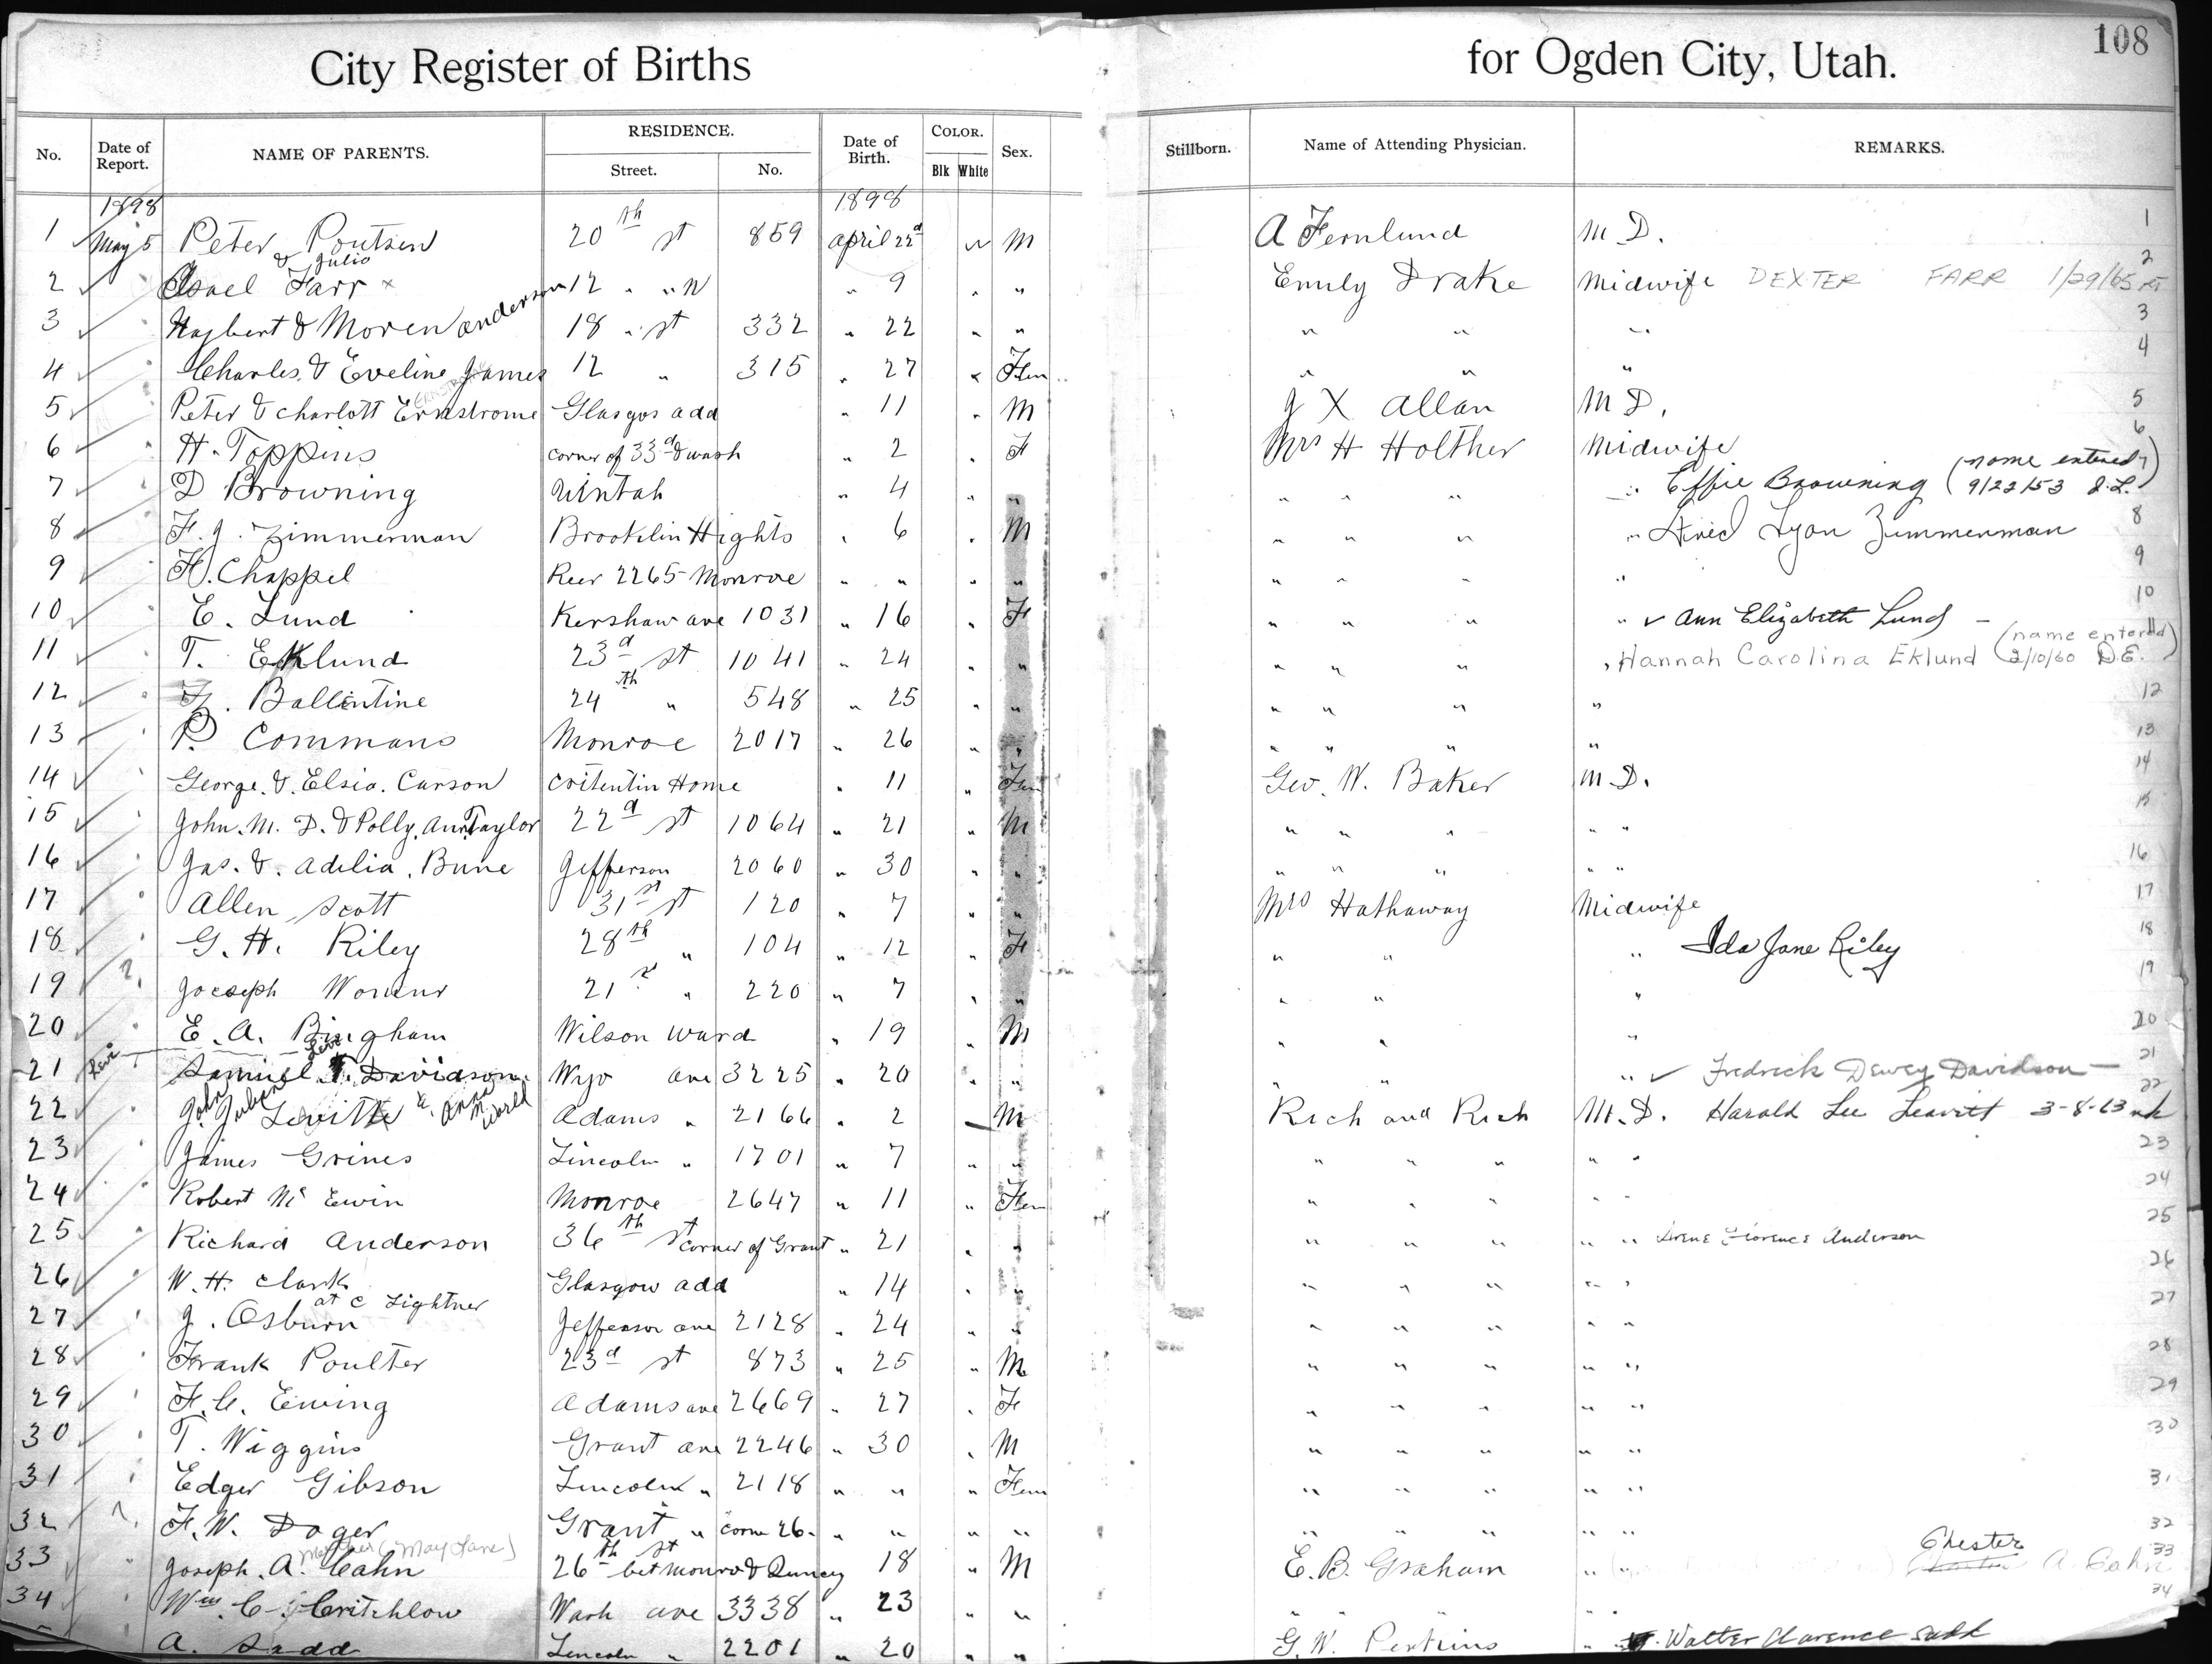 City Register of Births for Ogden City, Utah. 108
No. Date of Report. NAME OF PARENTS. RESIDENCE. Street. No. Date of Birth. COLOR. Blk White Sex. Stillborn. Name of Attending Physician. REMARKS.
1898 1898
1 May 5 Peter Poutsen 20th st 859 april 22d M A Fernlund M D. 1
& Julia
2 Asael Farr x 12 " " N " 9 " " Emily Drake Midwife DEXTER FARR 1/29/65 2
3 & Moren anderson 18 " st 332 " 22 " " " " " 3
4 Charles & Eveline James 12 " 315 " 27 " Fem " " " 4
5 Peter & Charlott Ernstrome Glasgos add " 11 " M J X Allan M D. 5
6 H. Toppins corner of 33d & wash " 2 " F Mrs H Holther Midwife 6
7 D Browning Uintah " 4 " " " " " " Effie Browning (name entered 9/22/53 J.L.) 7
8 F. J. Zimmerman Brooklin Hights " 6 " M " " " " Lyon Zimmerman 8
9 H. Chappel Reer 2265 Monroe " " " " " " " " 9
10 E. Lund Kershaw ave 1031 " 16 " F " " " " ✓ Ann Elizabeth Lund - 10
11 T. Eklund 23d st 1041 " 24 " " " " " " Hannah Carolina Eklund (name entered 2/10/60 D.E.)
12 F. Ballentine 24th " 548 " 25 " " " " " " 12
13 P. Commans Monroe 2017 " 26 " " " " " " 13
14 George. & Elsia. Carson Critentin Home " 11 " Fem Geo. W. Baker M. D. 14
15 John. M. D. & Polly. Ann Taylor 22d st 1064 " 21 " M " " " " " 15
16 Jas. & Adelia. Bune Jefferson 2060 " 30 " " " " " " " 16
17 Allen Scott 31st st 120 " 7 " " Mrs Hathaway Midwife 17
18 G. H. Riley 28th " 104 " 12 " F " " " Ida Jane Riley 18
19 ? Joeseph 21st " 220 " 7 " " " " " 19
20 E. A. Bingham Wilson Ward " 19 " M " " " 20
21 Levi Samuel Levi T. Davidson. Wyo ave 3225 " 20 " " " " " ✓ Fredrick Dewey Davidson - 21
22 John Levitt & Anna M. Adams " 2166 " 2 M Rich and Rich M. D. Harald Lee Leavitt 3-8-63 22
23 James Grines Lincoln " 1701 " 7 " " " " " " " 23
24 Robert Mc Ewin Monroe 2647 " 11 " Fem " " " " " 24
25 Richard Anderson 36th st corner of Grant " 21 " " " " " " " Irene Florence Anderson 25
26 W. H. Clark Glasgow add " 14 " " " " " " " 26
at C Lightner
27 J. Osburn Jefferson ave 2128 " 24 " " " " " " " 27
28 Frank Poulter 23d st 873 " 25 " M " " " " " 28
29 F. C. Ewing Adams ave 2669 " 27 " F " " " " " 29
30 T. Wiggins Grant ave 2246 " 30 " M " " " " " 30
31 Edger Gibson Lincoln " 2118 " " " Fem " " " " " 31
32 ? F. W. Dager Grant " corne 26 " " " " " " " " " 32
Mother (May Lane) Chester
33 Joseph. A. Cahn 26th st bet monro & Quncy 18 " M E. B. Graham " " A. Cahn 33
34 Wm. C. Critchlow Wash ave 3338 " 23 " " " " " 34
A. Sadd Lincoln " 2201 " 20 " " G. W. Perkins " " Walter Clarence Sadd